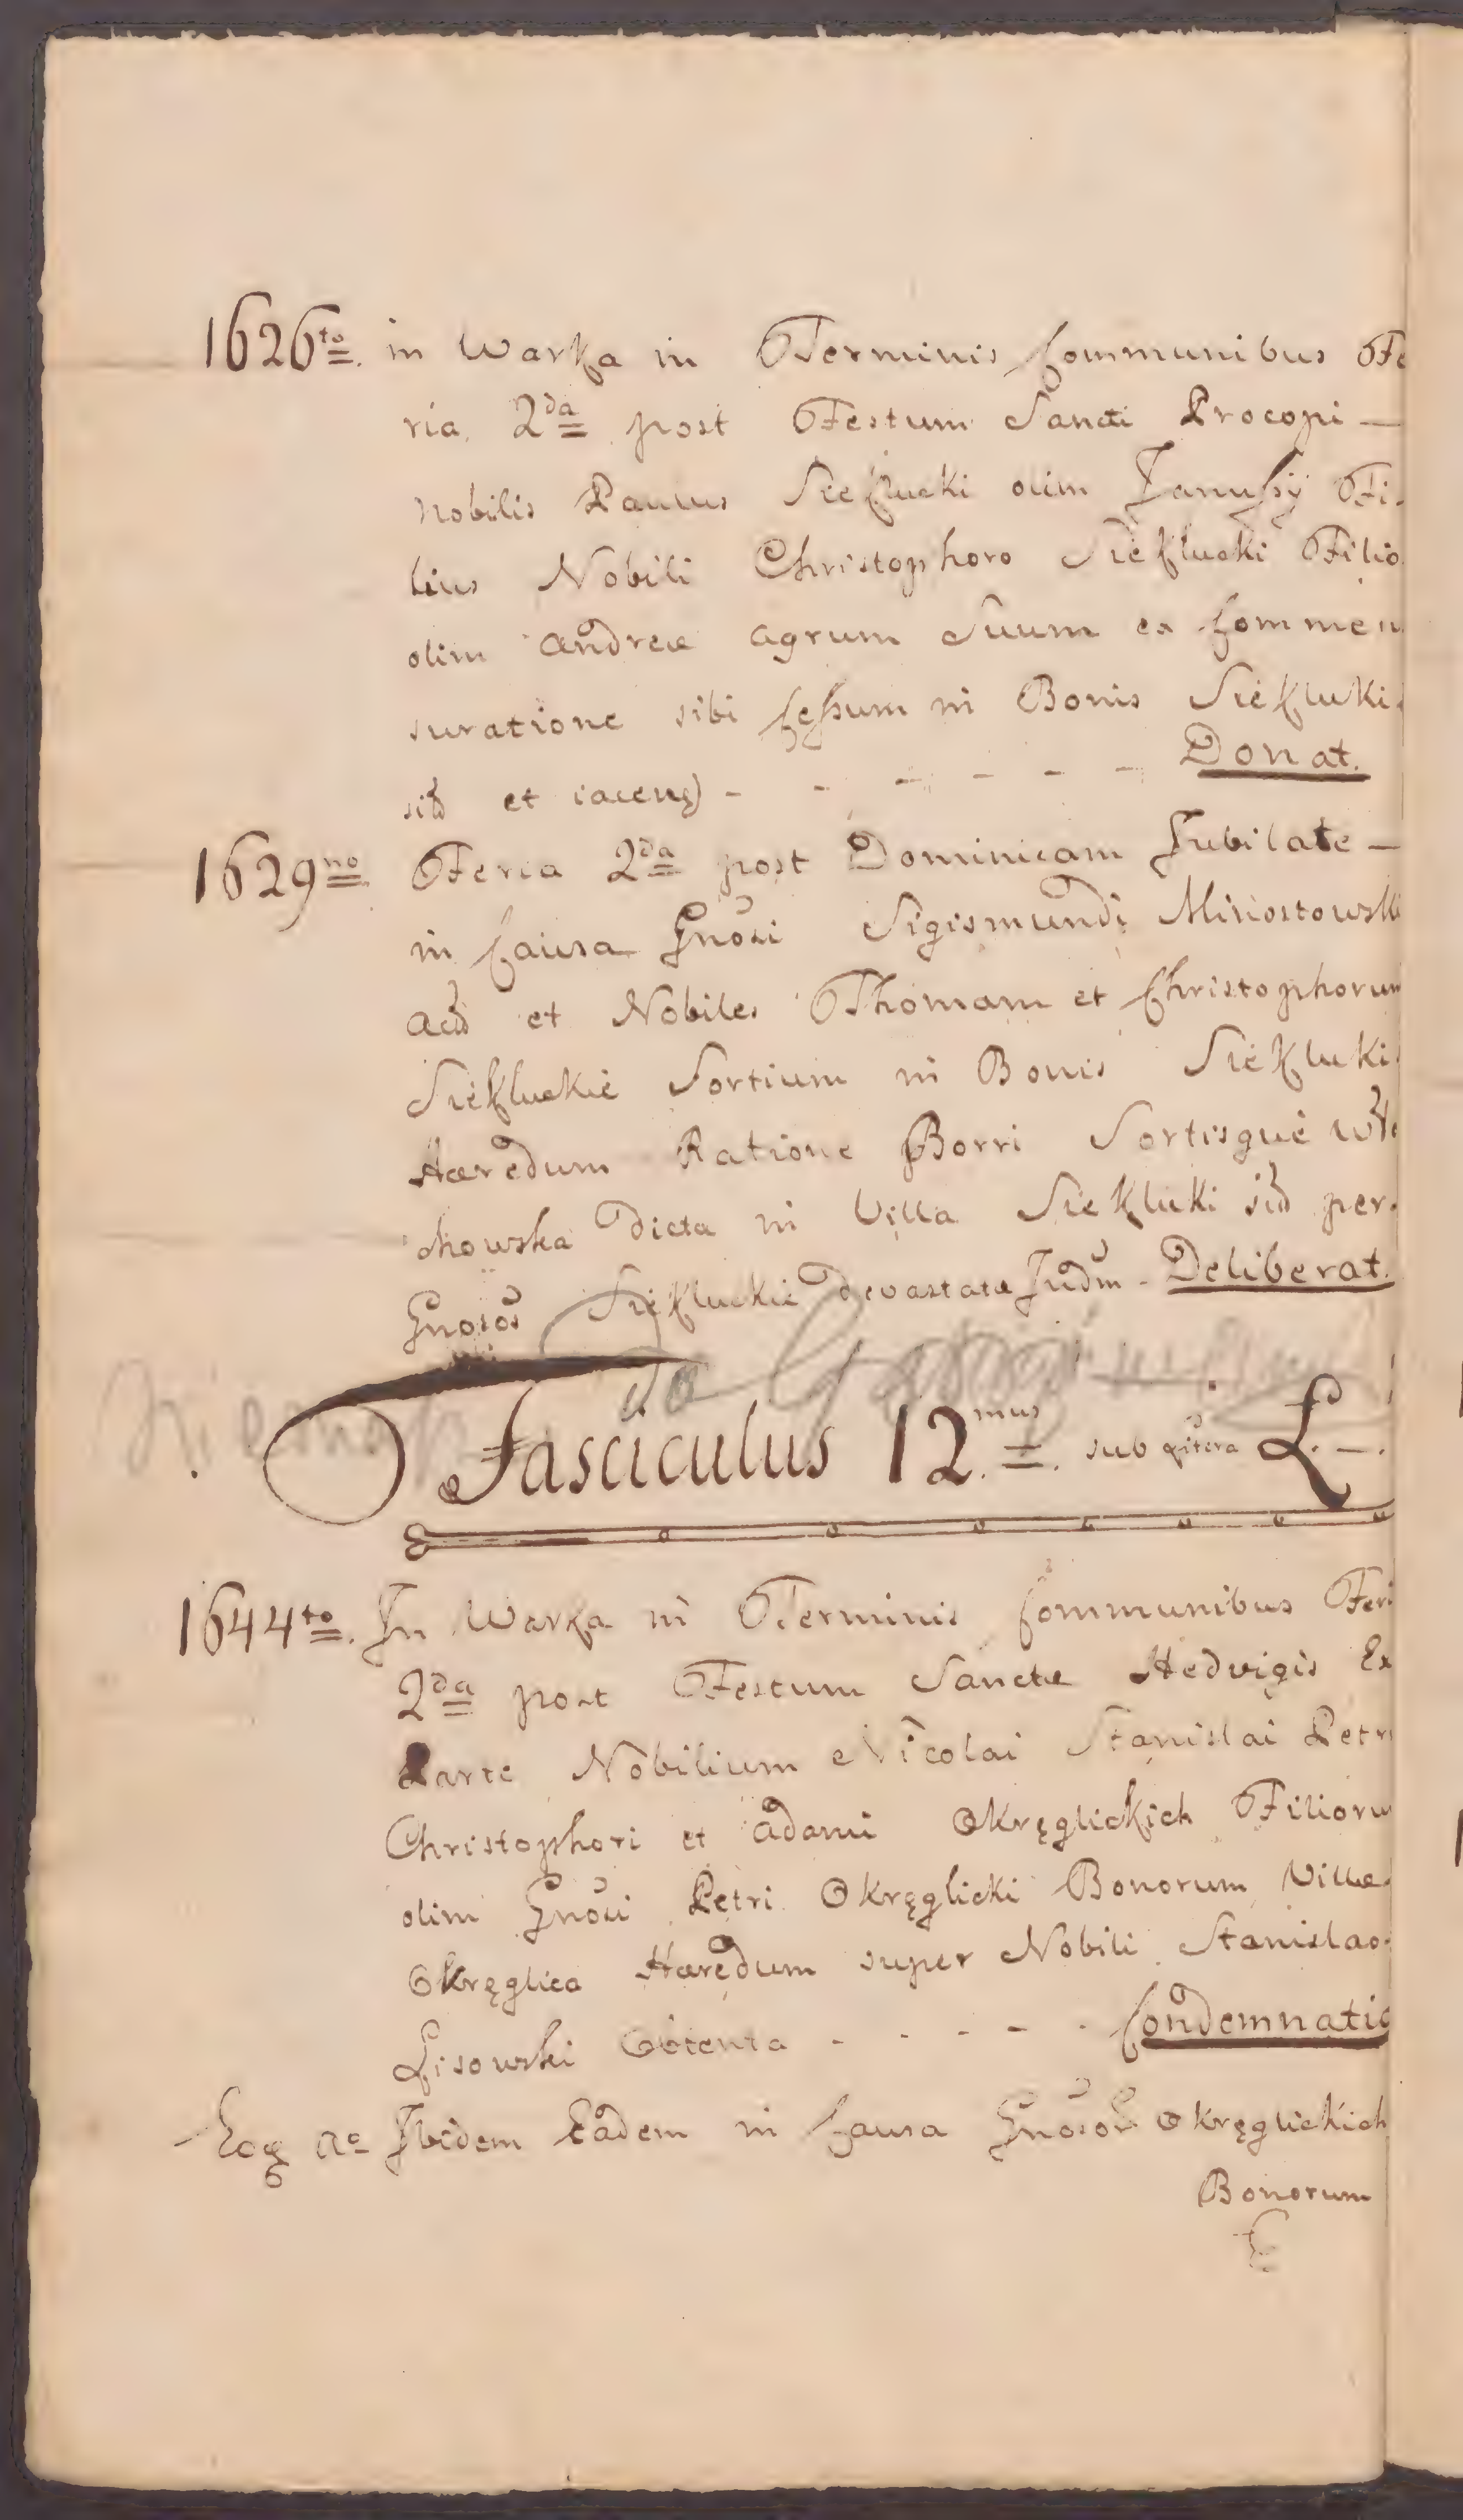 1626to. in Warka in Terminis Communibus Fe
ria 2da post Festum Sancti Procopi —
Nobilis Paulus Siekłucki olim Janussÿ Fi-
lius Nobili Christophoro Siekłucki Filio
olim Andreæ agrum Suum ex Commen
suratione sibi Cessum in Bonis Siekłuki
sit et iacen - - - - - - Donat.
1629no Feria 2da post Dominicam Jubilate —
in Causa Gnosi Sigismundi
et Nobiles Thomam et Christophorum
Siekłuckie Sortium in Bonis Siekłuki
Hæredum Ratione Borri Sortisque
chowska Dicta in Villa Siekłuki sit per
Gnosos Siekłuckie devastatæ Judm - Deliberat.
do
Fasciculus 12.mus sub Litera L. —.
1644to. In Warka in Terminis Communibus Feri
2da post Festum Sanctæ Hedvigis Ex
Parte Nobilium Nicolai Stanislai Petri
Christophori et Adami Okręglickich Filioru
olim Gnosi Petri Okręglicki Bonorum Villæ
Okręglica Hæredum super Nobili Stanislao
Lisowski Obtenta - - - - - Condemnatio
Eoq Ao Ibidem Eadem in Causa Gnosor Okręglickich
Bonorum